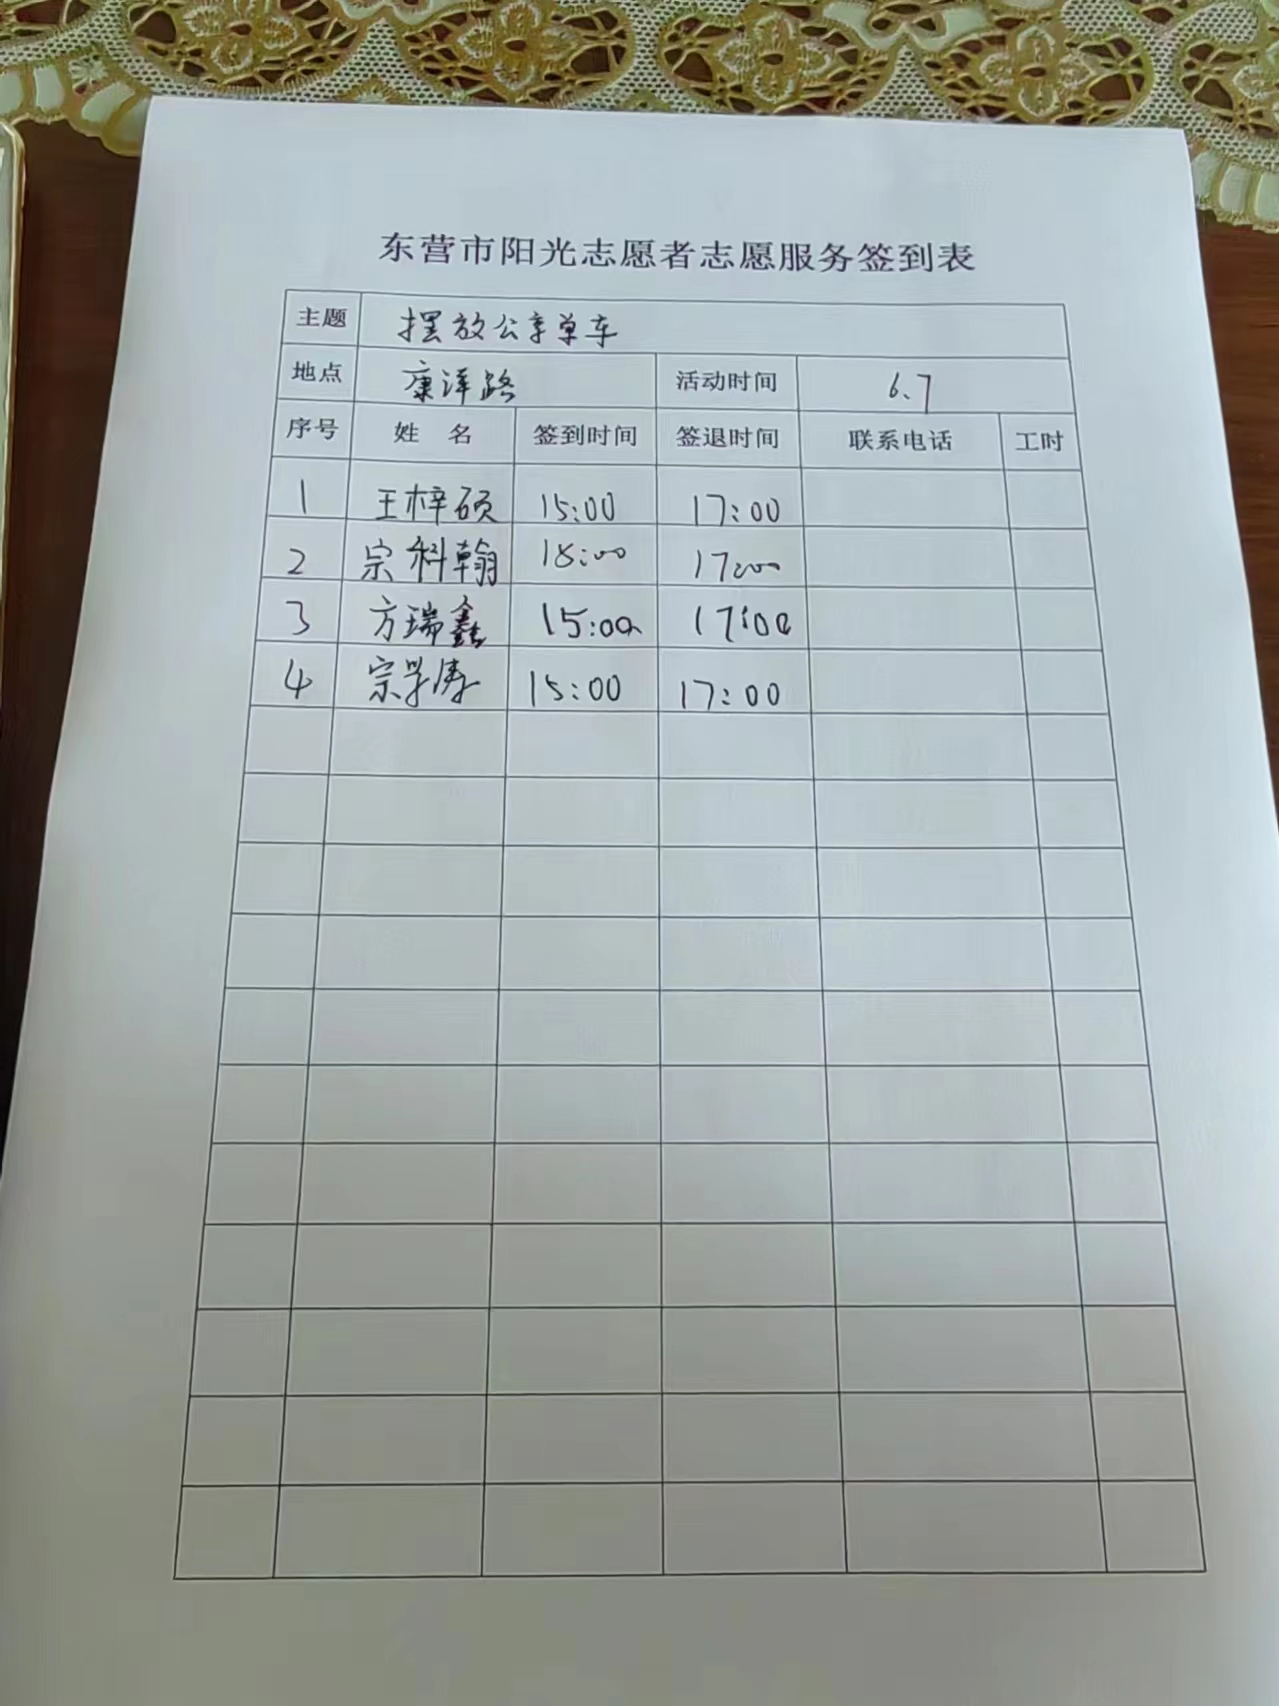 东营市阳光志愿者志愿服务签到表
主题 摆放公享单车
地点 康洋路 活动时间 6.7
序号 姓 名 签到时间 签退时间 联系电话 工时
1 王梓硕 15:00 17:00
2 宗科翰 18:00 17:00
3 方瑞鑫 15:00 17:00
4 宗学涛 15:00 17:00